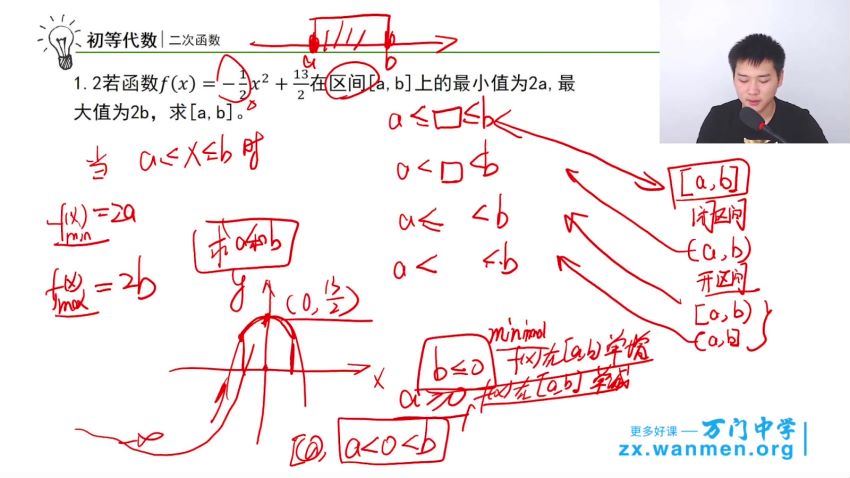 初等代数 | 二次函数
1.2若函数f(x)=-\frac{1}{2}x²+\frac{13}{2}在区间[a,b]上的最小值为2a,最
大值为2b，求[a,b]。
a b
当 a≤x≤b 时
f(x)min=2a
f(x)max=2b
求a和b
a≤□≤b
a<□<b
a≤ <b
a< ≤b
[a,b]
闭区间
(a,b)
开区间
[a,b)
(a,b]
y
(0,\frac{13}{2})
x
minimal
b≤0 f(x)在[a,b]单增
a≥0 f(x)在[a,b]单减
a<0<b
更多好课 — 万门中学
zx.wanmen.org